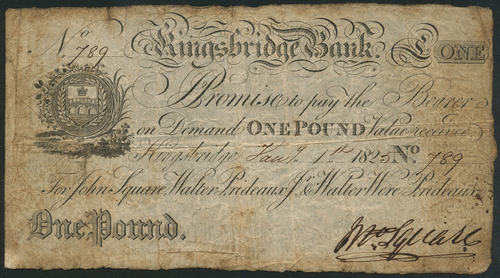 No. 789
Kingsbridge Bank £ ONE
Promise to pay the Bearer
on Demand ONE POUND Value received
Kingsbridge, Jany. 1st 1825 No. 789
For John Square, Walter Prideaux Jr. & Walter Were Prideaux
One Pound.
Jno Square